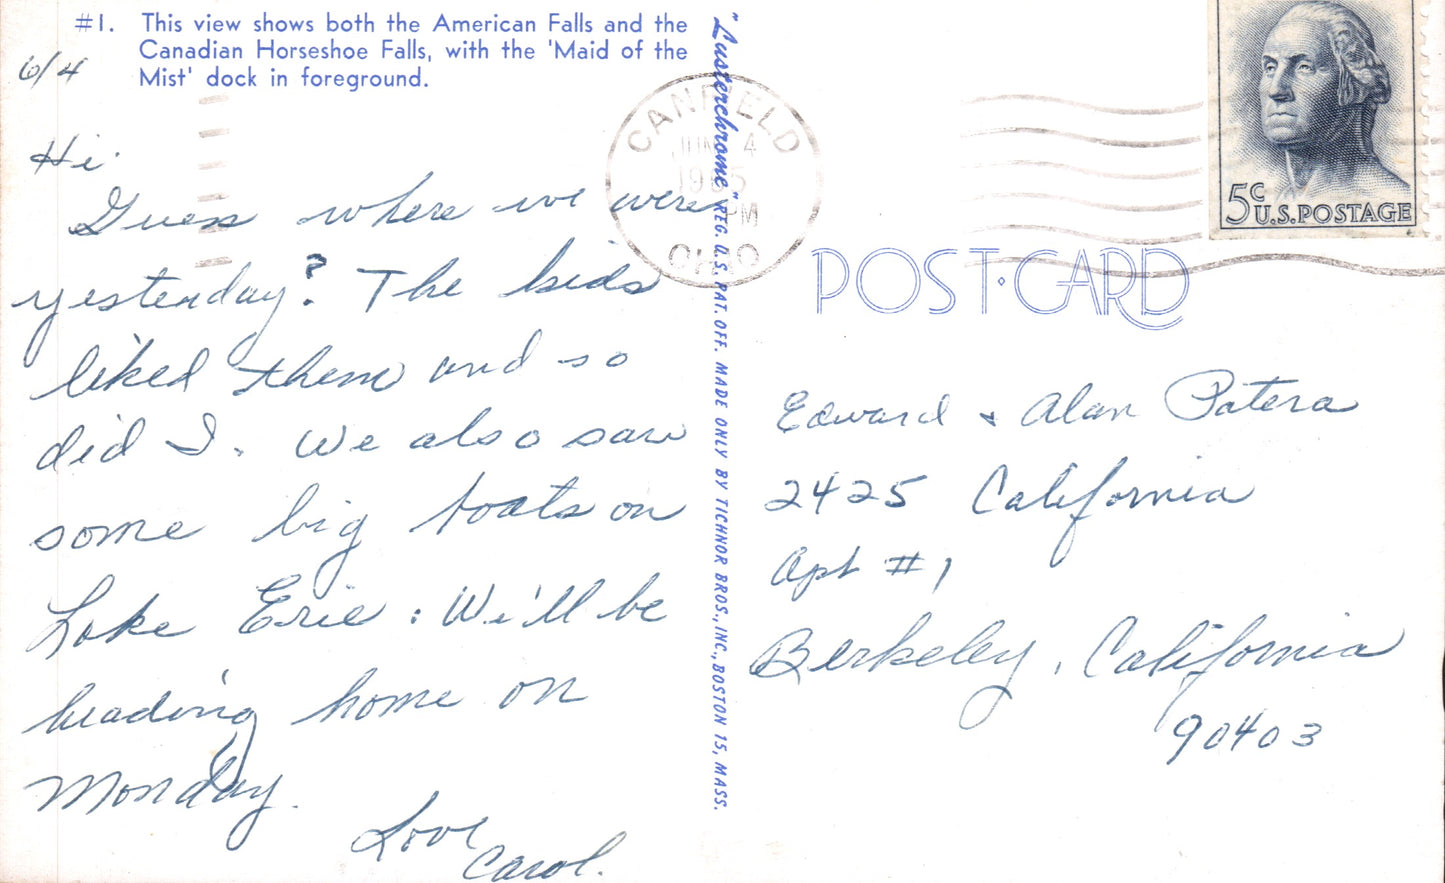 #1. This view shows both the American Falls and the
Canadian Horseshoe Falls, with the 'Maid of the
Mist' dock in foreground.
6/4
Hi.
Guess where we were
yesterday? The kids
liked them and so
did I. We also saw
some big boats on
Lake Erie. We'll be
heading home on
Monday.
Love
Carol.
"Lusterchrome" REG. U.S. PAT. OFF. MADE ONLY BY TICHNOR BROS., INC., BOSTON 15, MASS.
CANFIELD
JUN 4
1965
PM
OHIO
5c
U.S. POSTAGE
POST·CARD
Edward & Alan Patera
2425 California
Apt #1
Berkeley, California
90403